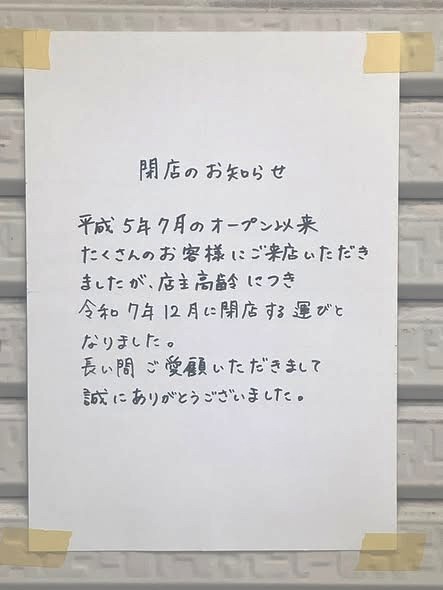 閉店のお知らせ
平成5年7月のオープン以来
たくさんのお客様にご来店いただき
ましたが、店主高齢につき
令和7年12月に閉店する運びと
なりました。
長い間ご愛顧いただきまして
誠にありがとうございました。